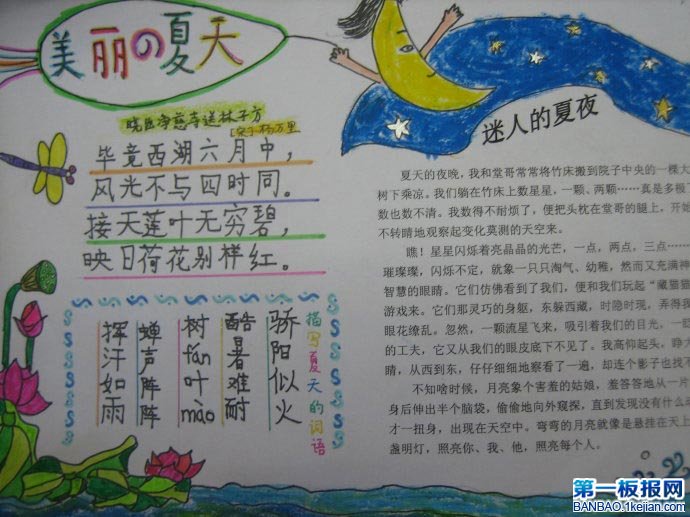 美丽の夏天
晓出净慈寺送林子方
[宋]杨万里
毕竟西湖六月中，
风光不与四时同。
接天莲叶无穷碧，
映日荷花别样红。
描写夏天的词语
骄阳似火
酷暑难耐
树fán叶mào
蝉声阵阵
挥汗如雨
迷人的夏夜
夏天的夜晚，我和堂哥常常将竹床搬到院子中央的一棵大
树下乘凉。我们躺在竹床上数星星，一颗、两颗……真是多极
数也数不清。我数得不耐烦了，便把头枕在堂哥的腿上，开始
不转睛地观察起变化莫测的天空来。
瞧！星星闪烁着亮晶晶的光芒，一点，两点，三点……
璀璨璨，闪烁不定，就象一只只淘气、幼稚，然而又充满神
智慧的眼睛。它们仿佛看到了我们，便和我们玩起“藏猫猫
游戏来。它们那灵巧的身躯，东躲西藏，时隐时现，弄得我
眼花缭乱。忽然，一颗流星飞来，吸引着我们的目光，一眨
的工夫，它又从我们的眼皮底下不见了。我高仰起头，睁大
睛，从西到东，仔仔细细地察看了一遍，却连个影子也找不
不知啥时候，月亮象个害羞的姑娘，羞答答地从一片
身后伸出半个脑袋，偷偷地向外窥探，直到发现没有什么动
才一扭身，出现在天空中。弯弯的月亮就像是悬挂在天上
盏明灯，照亮你、我、他，照亮每个人。
第一板报网
BANBAO.1kejian.com